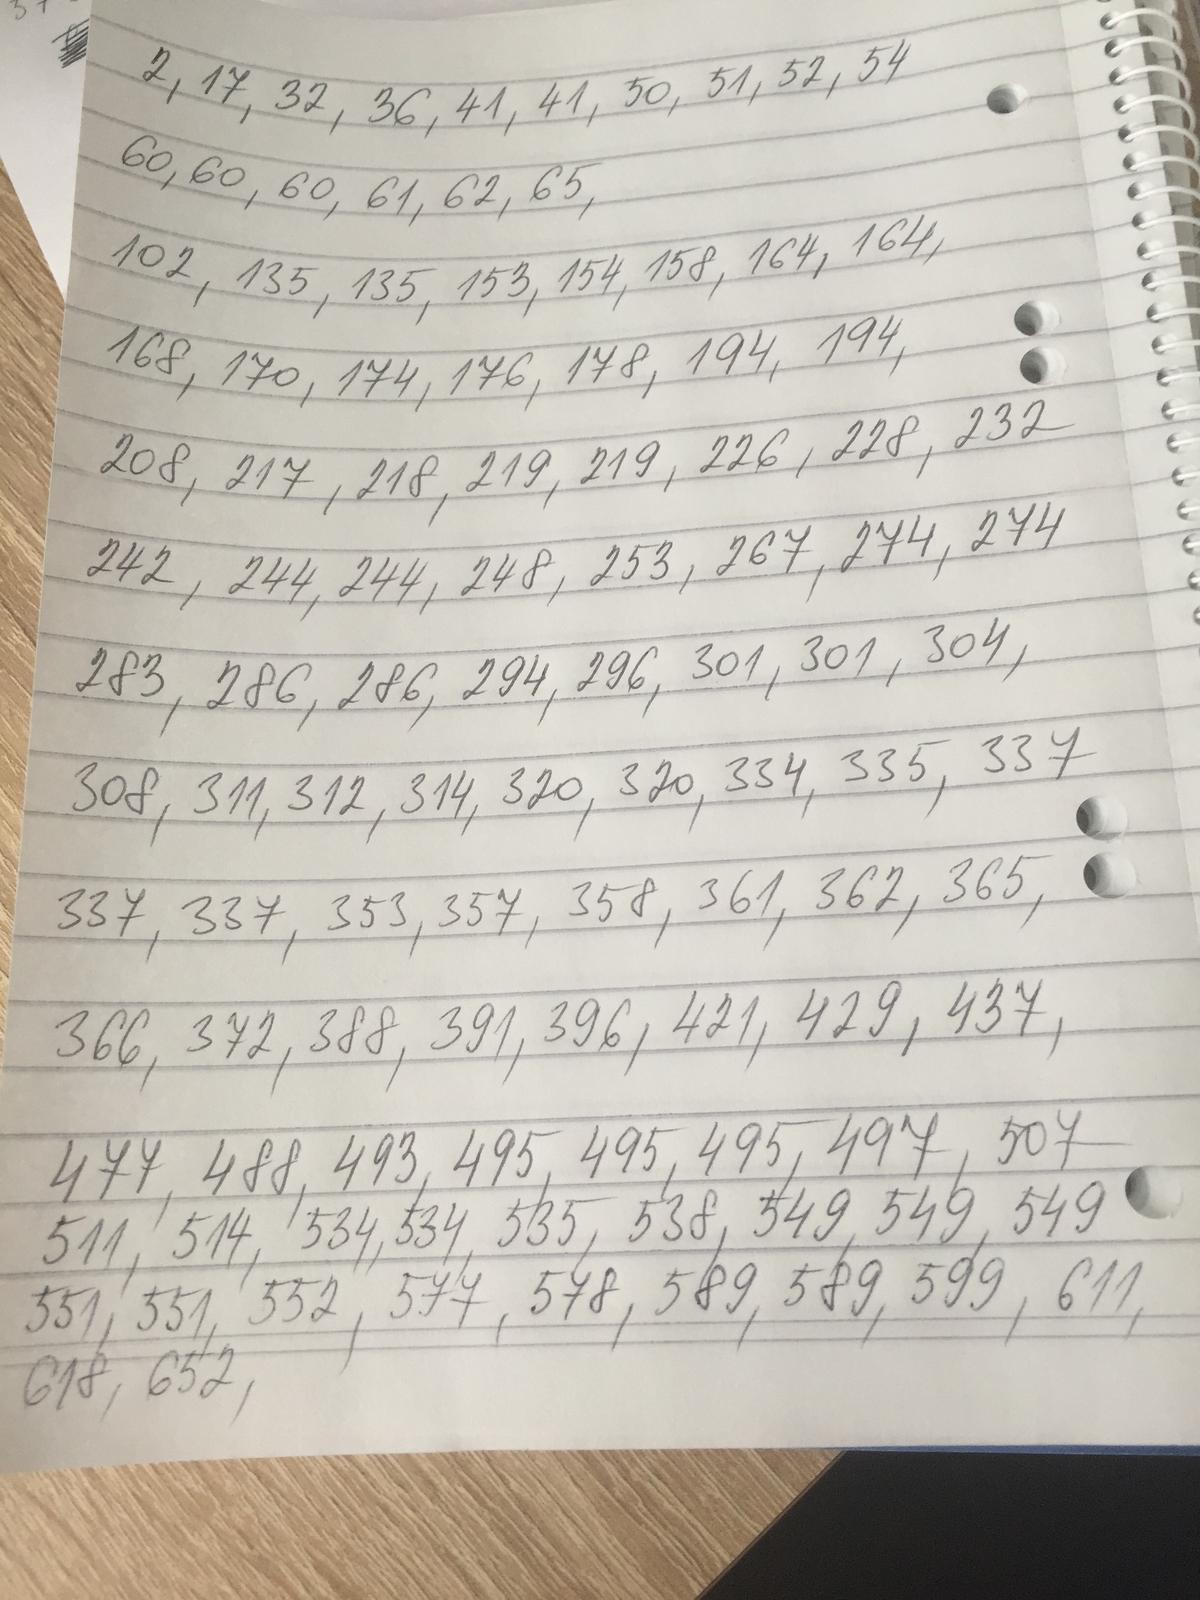 2, 17, 32, 36, 41, 41, 50, 51, 52, 54
60, 60, 60, 61, 62, 65,
102, 135, 135, 153, 154, 158, 164, 164,
168, 170, 174, 176, 178, 194, 194,
208, 217, 218, 219, 219, 226, 228, 232
242, 244, 244, 248, 253, 267, 274, 274
283, 286, 286, 294, 296, 301, 301, 304,
308, 311, 312, 314, 320, 320, 334, 335, 337
337, 337, 353, 357, 358, 361, 362, 365,
366, 372, 388, 391, 396, 421, 429, 437,
477, 488, 493, 495, 495, 495, 497, 507
511, 514, 534, 534, 535, 538, 549, 549, 549
551, 551, 552, 577, 578, 589, 589, 599, 611,
618, 652,